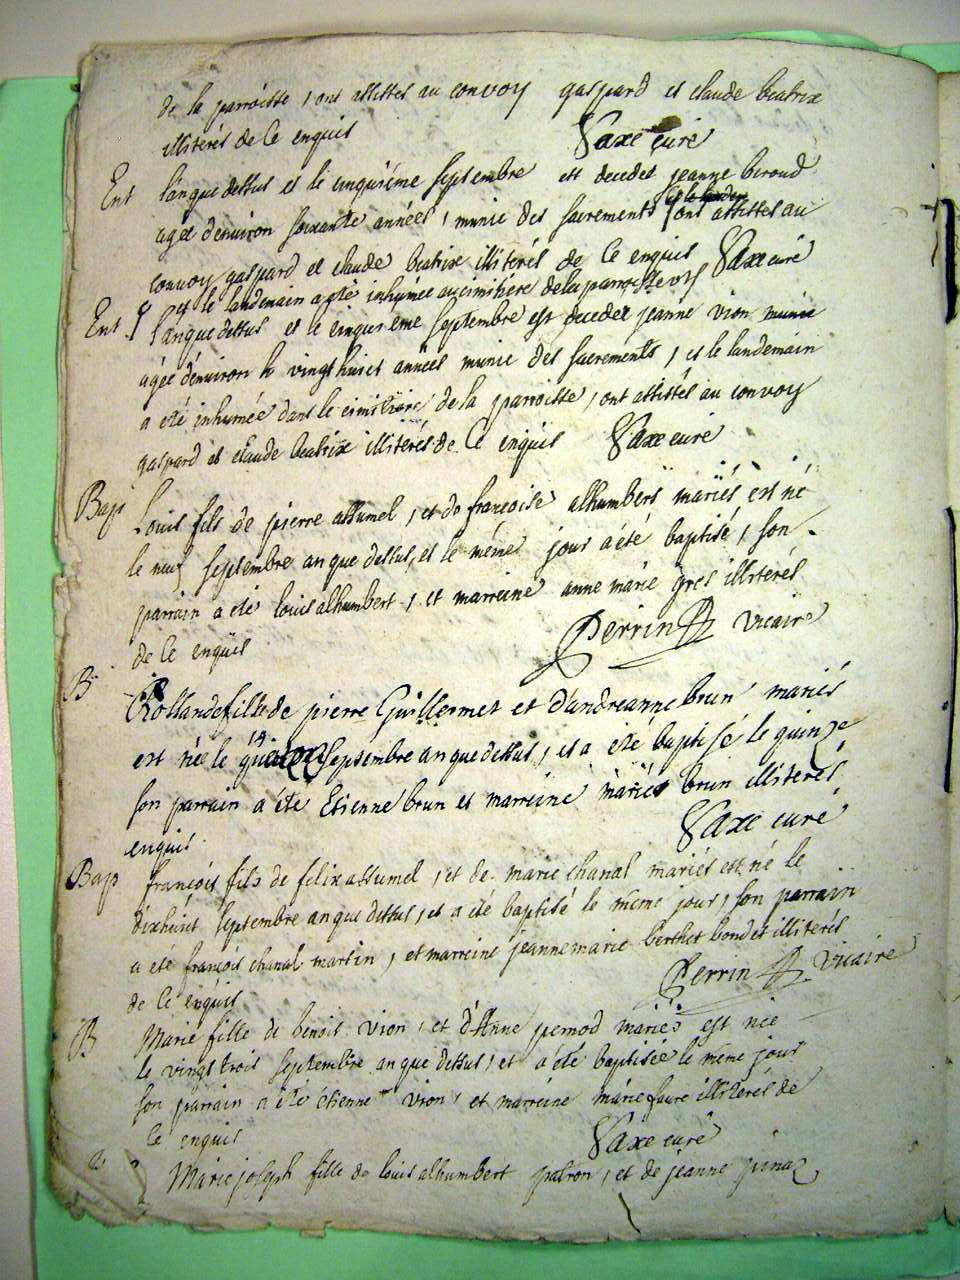 de la parroisse, ont assistes au convoy gaspard et claude beatrix
illiterés de ce enquis
Saxe curé
Ent l'anque dessus et le cinquième septembre est decedes jeanne beroud
agée denviron soixante années, munie des sacrements ont assistes au
convoy gaspard et claude beatrix illiterés de ce enquis Saxe curé
et le landemain a eté inhumée au cimitiere de la parroisse
Ent l'anque dessus et le cinquième septembre est decedee jeanne vion munie
agée d'environ vingt huict années munie des sacrements, et le landemain
a eté inhumée dans le cimitiere de la parroisse, ont assistés au convoy
gaspard et claude beatrix illiterés de ce enquis Saxe curé
Bap Louis fils de pierre assumel, et de francoise alhumbert mariés est né
le neuf septembre an que dessus, et le même jour a été baptisé, son
parrain a eté louis alhumbert, et marreine anne marie gres illiterés
de ce enquis Perrin Vicaire
B Rollande fille de pierre Guillermet et d'andreanne brun mariés
est née le 14 septembre an que dessus, et a eté baptisé le quinze
son parrain a éte Etienne brun et marreine marie brun illiterés
enquis. Saxe curé
Bap françois fils de felix assumel, et de marie chanal mariés est né le
dixhuit septembre an que dessus, et a été baptisé le même jour, son parrain
a été françois chanal martin, et marreine jeanne marie berthet bondet illiterés
de ce enquis Perrin Vicaire
B Marie fille de benoit vion, et d'Anne pernod mariés est née
le vingt trois septembre an que dessus, et a été baptisée le même jour
son parrain a été étienne vion et marreine marie faure illiterés de
ce enquis Saxe curé
Marie joseph fille de louis alhumbert patron, et de jeanne pinaz